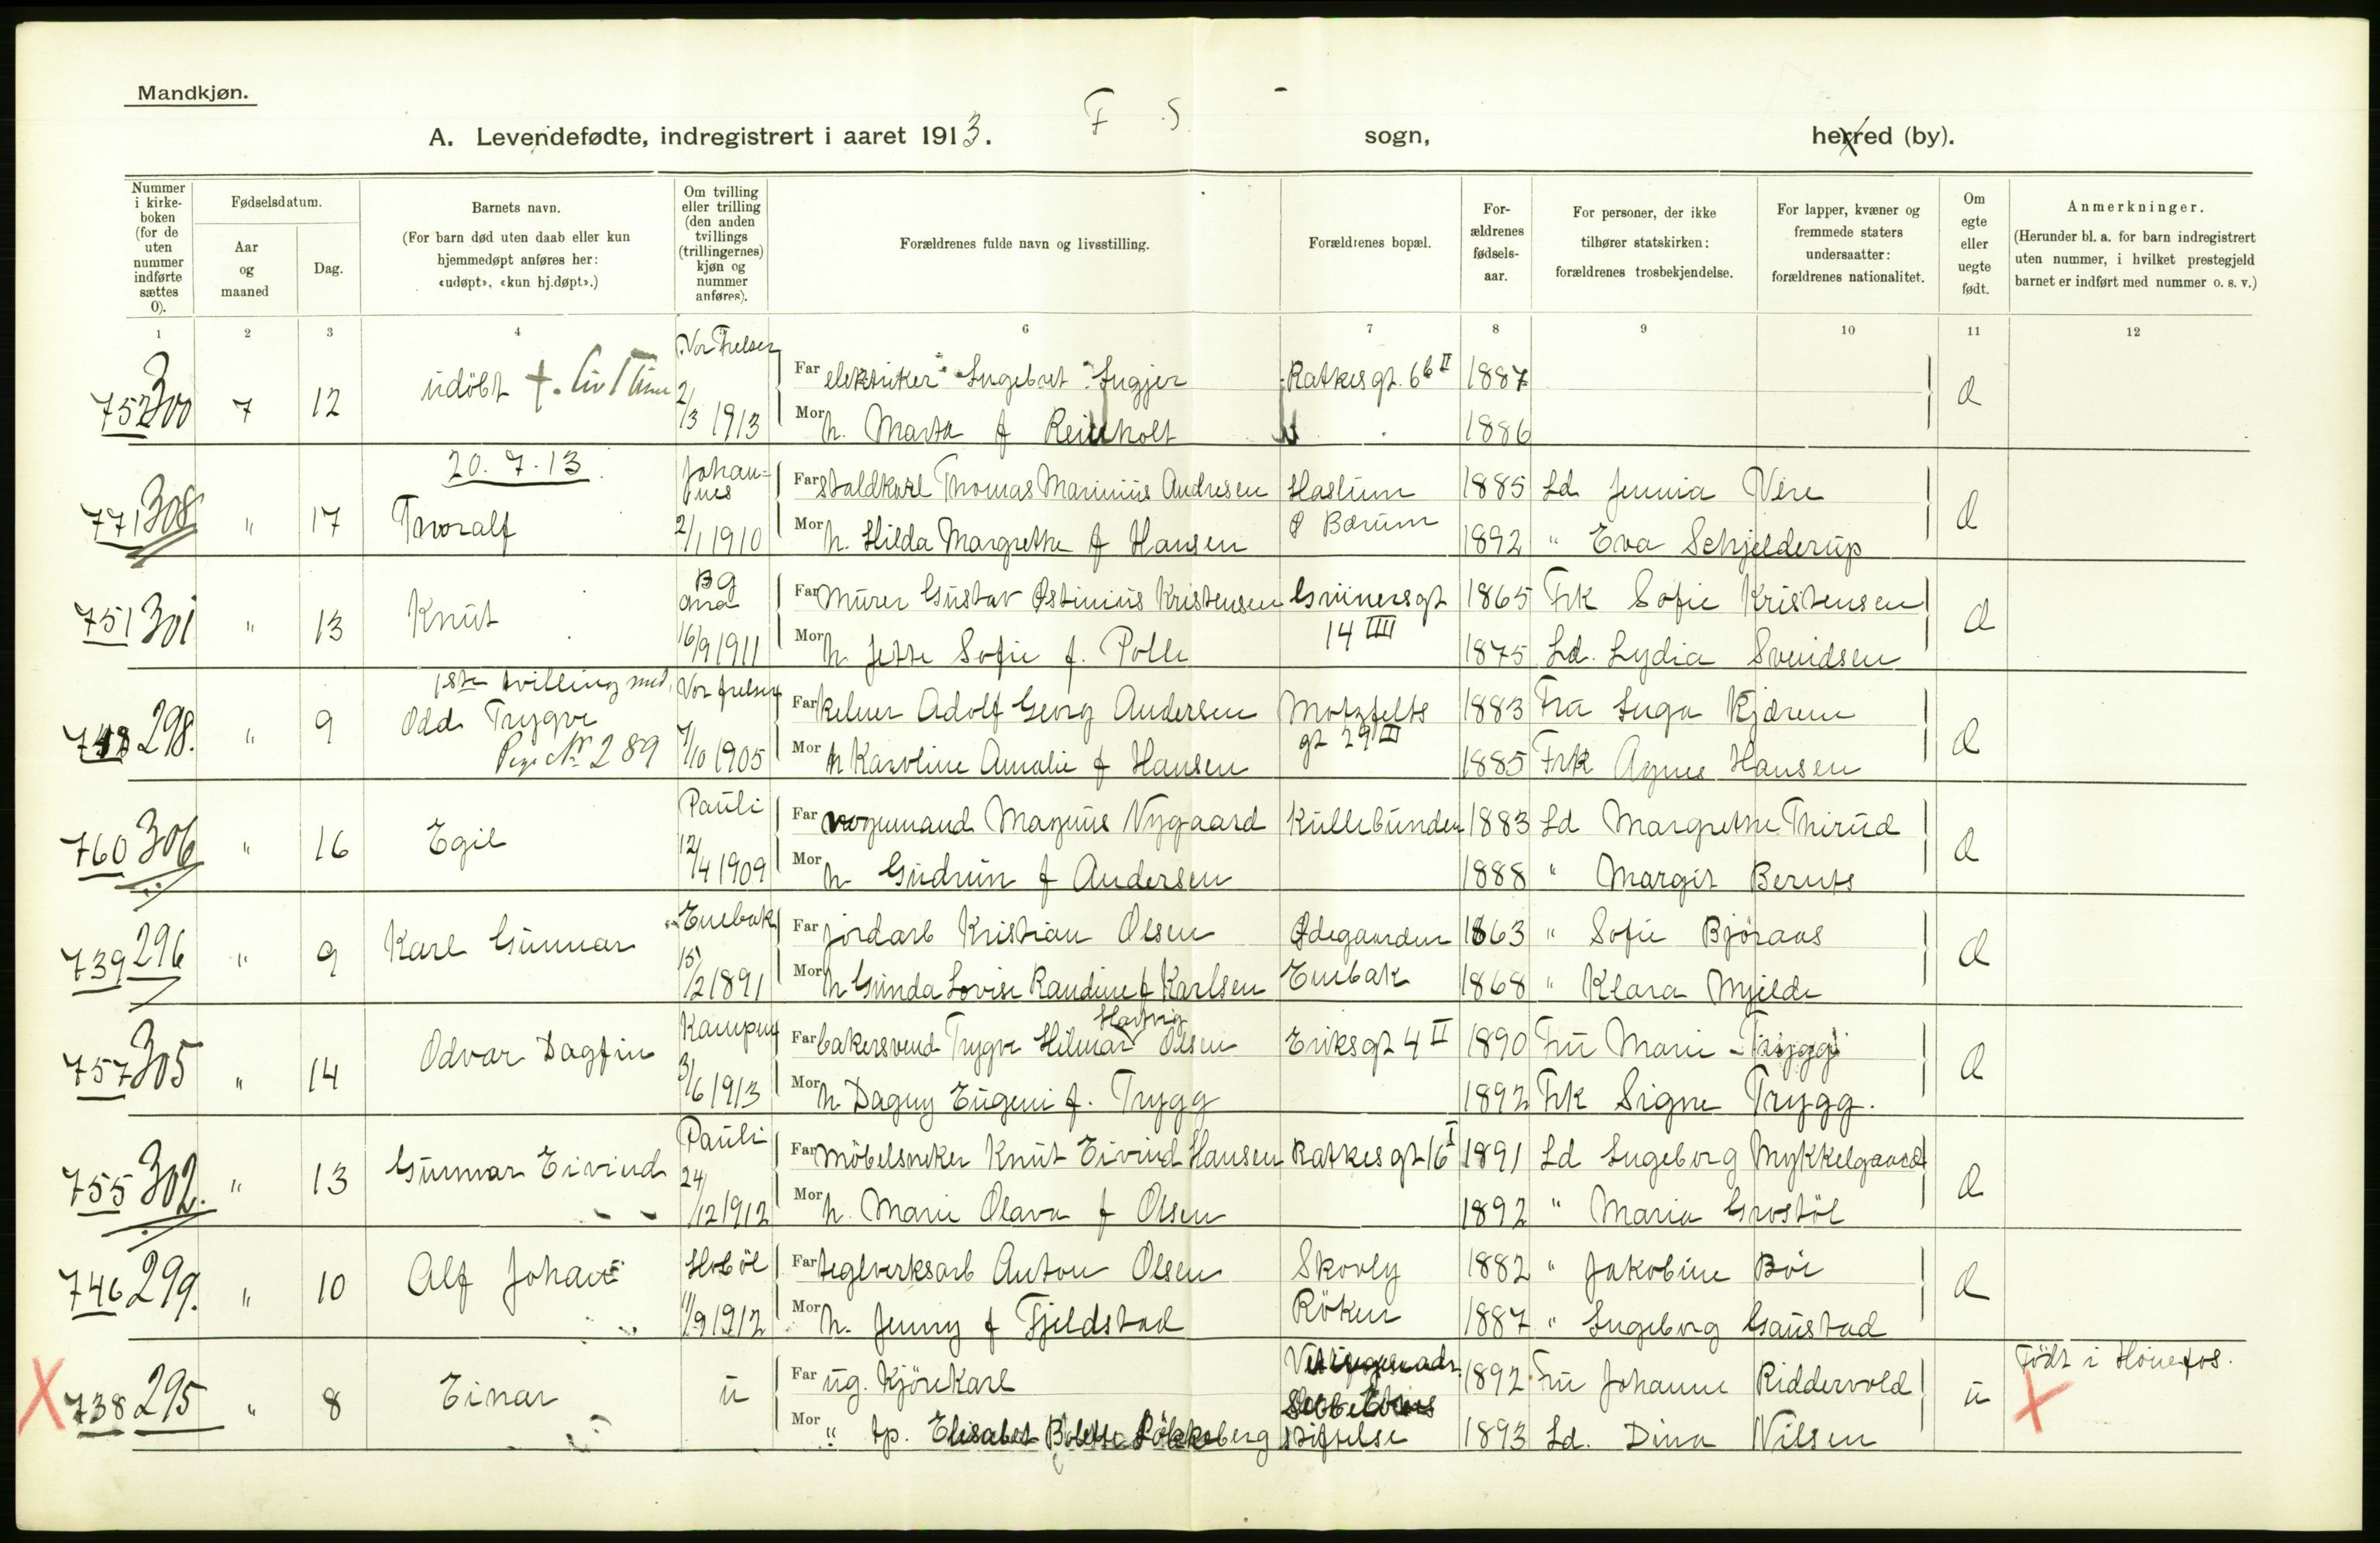 Mandkjøn.
A. Levendefødte, indregistrert i aaret 1913. F S sogn, herred (by).
Nummer i kirkeboken (for de uten nummer indførte sættes 0).
Fødselsdatum.
Aar og maaned
Dag.
Barnets navn.
(For barn død uten daab eller kun hjemmedøpt anføres her: «udøpt», «kun hj.døpt».)
Om tvilling eller trilling (den anden tvillings (trillingernes) kjøn og nummer anføres).
Forældrenes fulde navn og livsstilling.
Forældrenes bopæl.
Forældrenes fødselsaar.
For personer, der ikke tilhører statskirken: forældrenes trosbekjendelse.
For lapper, kvæner og fremmede staters undersaatter: forældrenes nationalitet.
Om egte eller uegte født.
Anmerkninger.
(Herunder bl. a. for barn indregistrert uten nummer, i hvilket prestegjeld barnet er indført med nummer o. s. v.)
1 2 3 4 6 7 8 9 10 11 12
752 300 7 12 udöbt Vor Frelser 2/3 1913
Far elektriker Ingebret Ratkesgt. 66 II 1887
Mor h. Marta f Reinholt 1886
20.7.13
771 308 " 17 Thoralf Johannes 2/1 1910
Far staldkarl Thomas Marinius Andresen Haslum 1885 Ld Jennia
Mor h. Hilda Margrethe f Hansen Bærum 1892 " Eva Schjelderup
751 301 " 13 Knut 16/9 1911
Far Murer Gustav Østinius Kristensen Grünersgt 1865 Frk Sofie Kristensen
Mor h. Jette Sofie f. Polle 14 IIII 1875 Ld. Lydia Svendsen
1ste tvilling med Vor frelser
748 298. " 9 Odd Trygve 7/10 1905
Pige № 289
Far kelner Adolf Georg Andersen Motzfelts 1883 Fra Inga Kjærem
Mor h Karoline Amalie f Hansen gt 29 III 1885 Frk Agnes Hansen
760 306 " 16 Egil Pauli 12/4 1909
Far vognmand Magnus Nygaard Kullebunden 1883 Ld Margrethe Thirud
Mor h Gudrun f Andersen 1888 " Margit Bernts
739 296 " 9 Karl Gunnar Enebak 15/2 1891
Far jordarb Kristian Olsen Ødegaarden 1863 " Sofie Björaas
Mor h Gunda Lovise Randine f Karlsen Enebak 1868 " Klara Mjelde
757 305 " 14 Odvar Dagfin Kampen 3/6 1913
Far bakersvend Trygve Hilmar Hartvig Olsen Eriksgt 4 II 1890 Fru Marie Trygg
Mor h. Dagny Eugeni f. Trygg 1892 Frk Signe Trygg.
755 302. " 13 Gunnar Eivind Pauli 24/12 1912
Far Möbelsneker Knut Eivind Hansen Ratkesgt 16 I 1891 Ld Ingeborg Mykkelgaard
Mor h. Marie Olava f Olsen 1892 " Maria Grostöl
746 299. " 10 Alf Johan Hoböl 11/9 1912
Far teglverksarb Anton Olsen Skovly 1882 " Jakobine Böe
Mor h. Jenny f Fjeldstad Röken 1887 " Ingeborg Gaustad
X 738 295 " 8 Einar u
Far ug. Kjörekarl 1892 Fru Johanne Riddervold u Födt i Hönefos.
Mor " tp. Elisabet Bolette stiftelse 1893 Ld. Dina Nilsen X